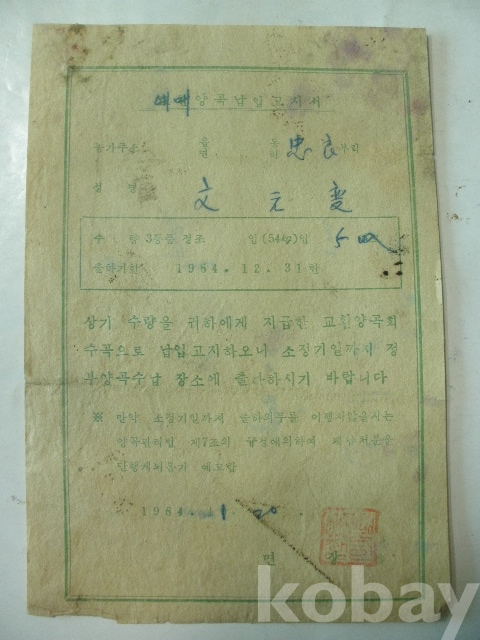 예매양곡납입고지서
농가주소 읍면 동리 忠良부락
성명 文元變
수량 3등품 정조 입(54㎏)입 5叺
출하기한 1964.12.31한
상기 수량을 귀하에게 지급한 교환양곡회
수곡으로 납입고지하오니 소정기일까지 정
부양곡수납 장소에 출하하시기 바랍니다
※ 만약 소정기일까지 출하의무를 이행치않을시는
양곡관리법 제7조의 규정에의하여 체납처분을
단행케되몰기 예고함
1964. 1 20
면 장
kobay